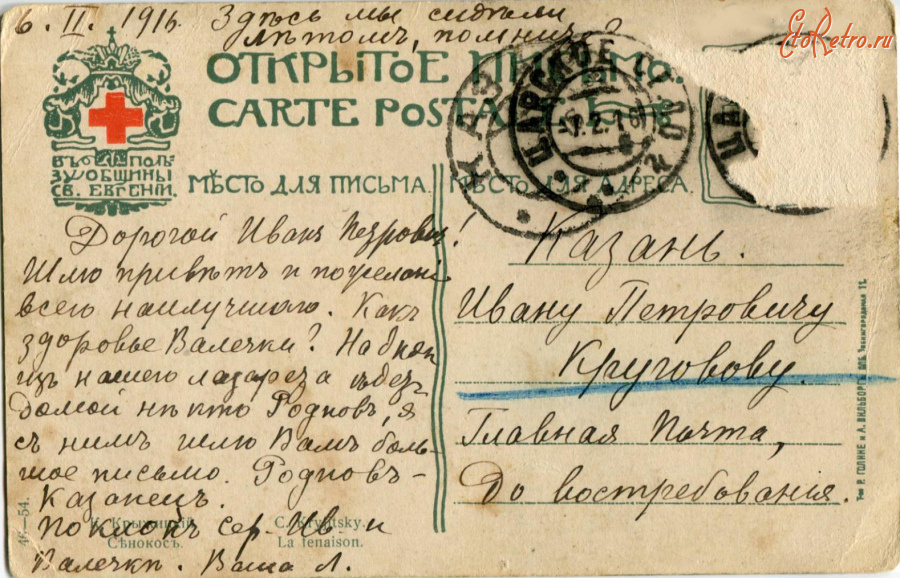 6. II. 1916. Здѣсь мы сидѣли
лѣтомъ, помните?
EtoRetro.ru
ОТКРЫТОЕ
CARTE POSTALE
ЦАРСКОЕ СЕЛО
7.2.16
КАЗ
ЦА
ВЪ ПОЛЬ
ЗУ ОБЩИНЫ
СВ. ЕВГЕНIИ.
МѢСТО ДЛЯ ПИСЬМА.
МѢСТО ДЛЯ АДРЕСА.
Дорогой Иванъ Петровичъ!
Шлю привѣтъ и пожеланiе
всего наилучшаго. Какъ
здоровье Валечки? На дняхъ
изъ нашего лазарета ѣдетъ
домой нѣкто Родповъ, я
съ нимъ шлю Вамъ боль-
шое письмо. Родповъ -
Казанецъ.
Поклонъ Сер. Ив. и
Валечкѣ. Ваша Л.
Казань.
Ивану Петровичу
Круговову.
Главная Почта,
До востребованiя.
К. Крыжицкiй.
Сѣнокосъ.
C. Kryjitsky.
La fenaison.
46-54.
Т-во Р. ГОЛИКЕ и А. ВИЛЬБОРГЪ. СПБ. Звенигородская 11.